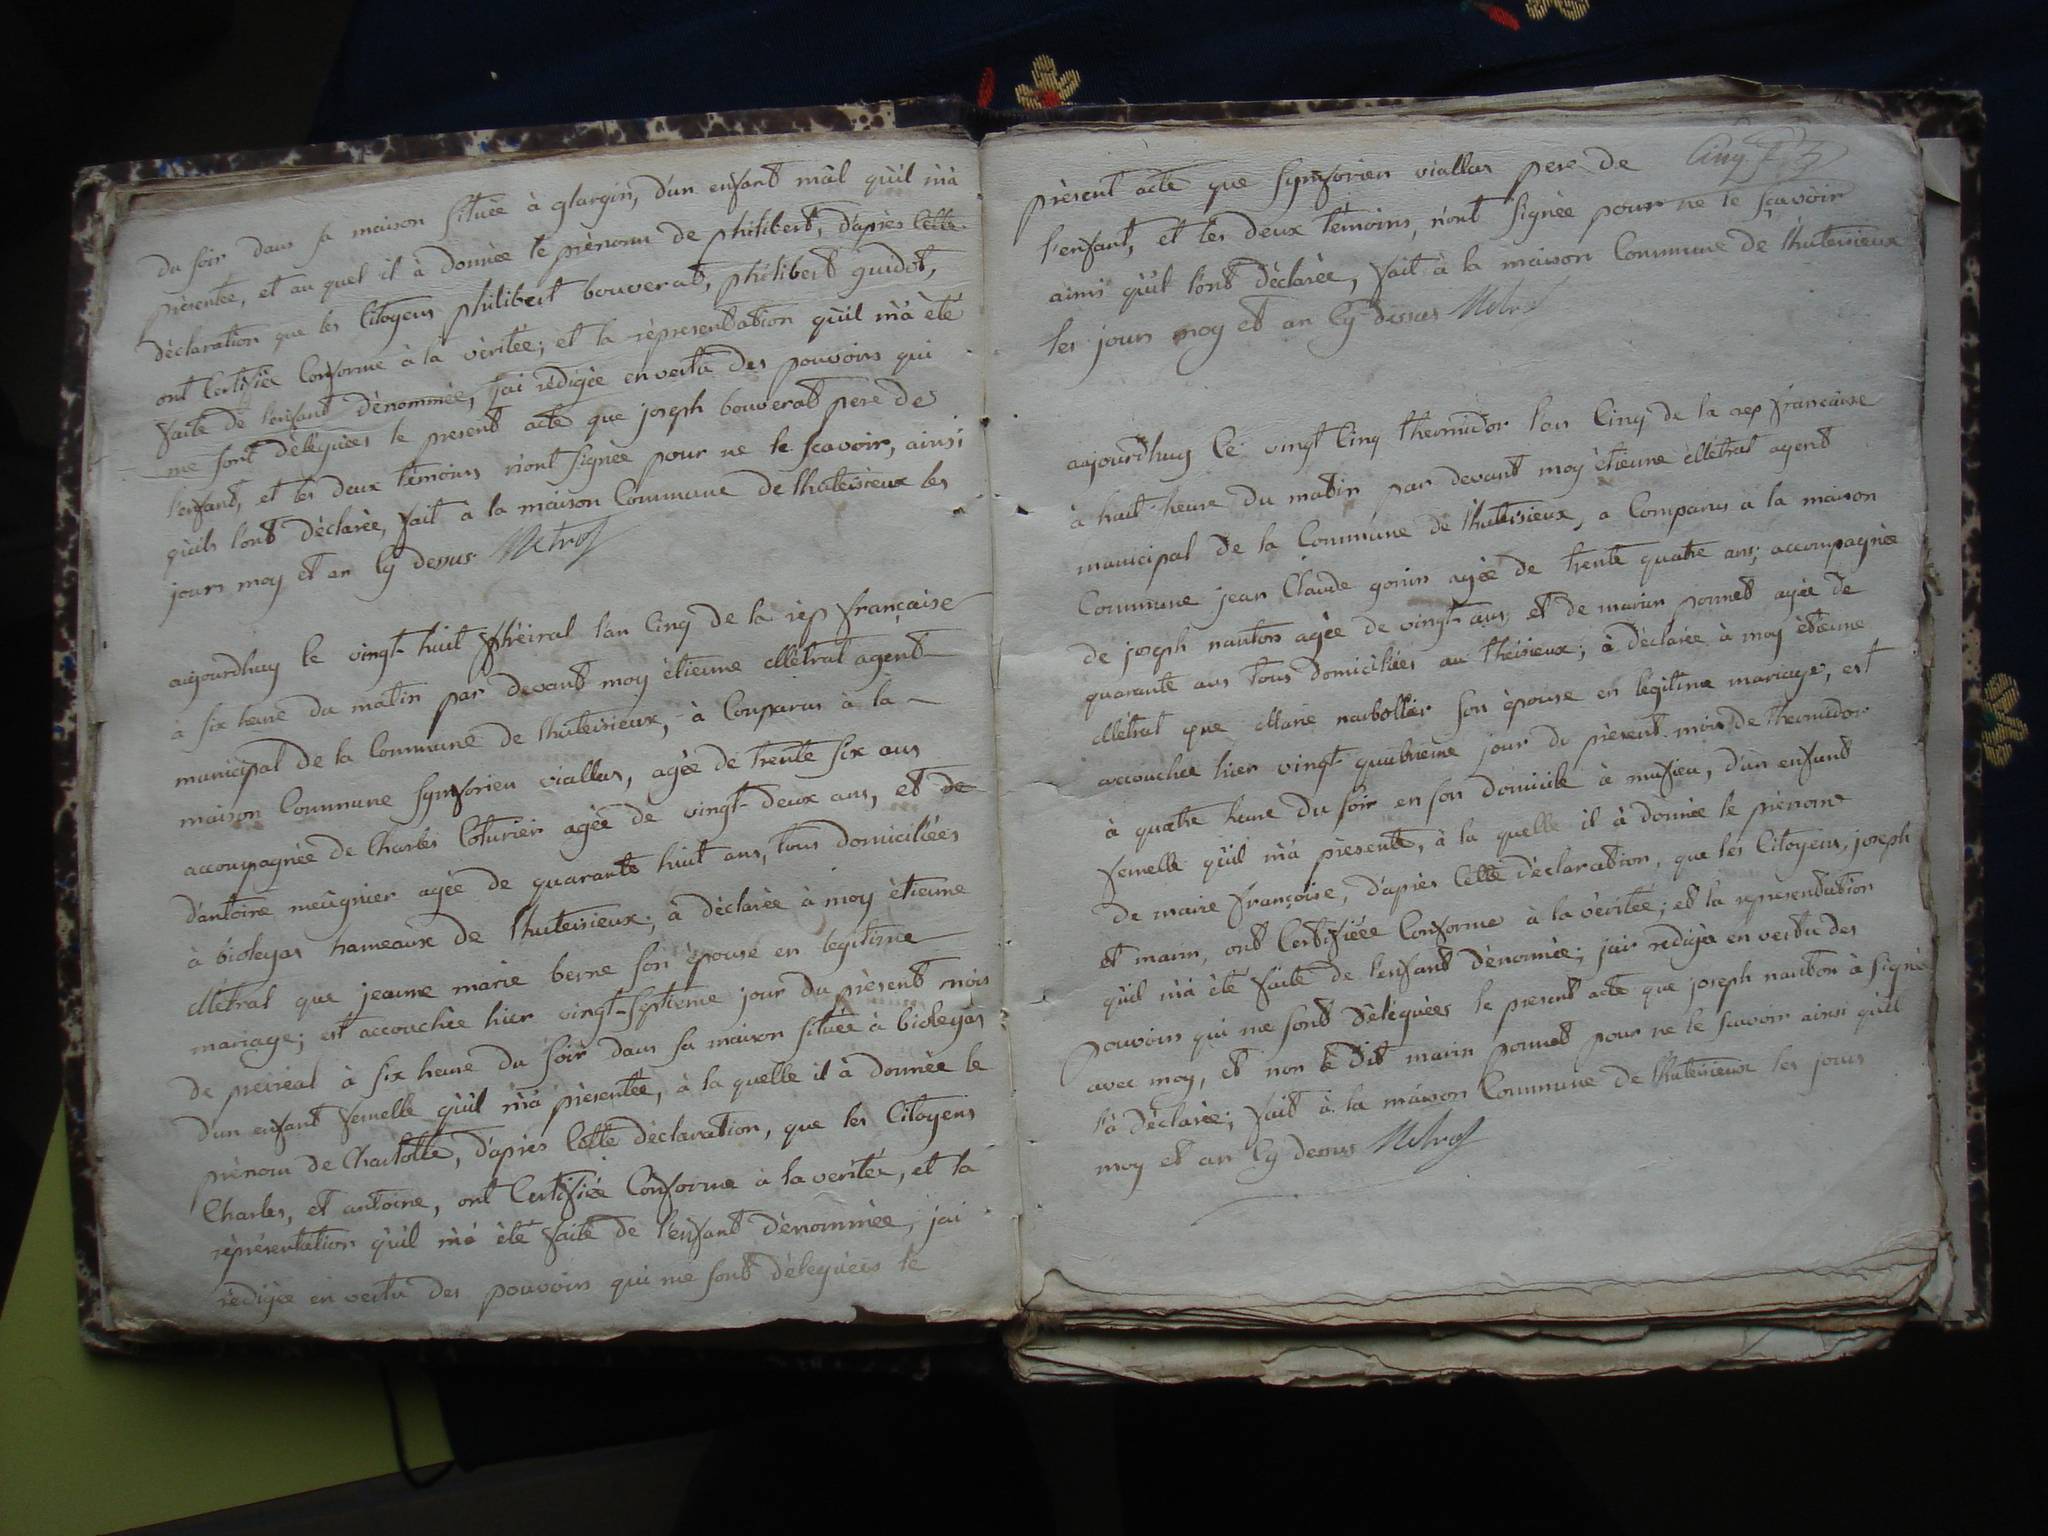 du soir dans sa maison située à glargin, d'un enfant mâl qu'il m'à
présentée, et au quel il à donnée le prénom de philibert, d'après cette
déclaration que les Citoyens philibert bouverat, philibert guidot,
ont Certifiée Conforme à la véritée; et la représentation qu'il m'à été
faite de l'enfant dénommée, j'ai rédigée en vertu des pouvoirs qui
me sont déléguées le present acte que joseph bouverat pere de
l'enfant, et les deux témoins n'ont signée pour ne le sçavoir, ainsi
qu'ils l'ont déclarée, fait à la maison Commune de lhuteisieux les
jours moy et an Cy dessus Metral
aujourdhuy le vingt-huit phréiral l'an Cinq de la rep française
à six heure du matin par devant moy étienne Métral agent
municipal de la Commune de lhuteisieux, à Comparus à la
maison Commune Symforien viallas, agée de trente six ans
accompagnée de Charles Coturier agée de vingt-deux ans, et de
d'antoine meûgnier agée de quarante huit ans, tous domiciliées
à bioleyas hameaux de lhuteisieux; à déclarée à moy étienne
Métral que jeanne marie berne son épouse en legitime
mariage; est accouchée hier vingt-septieme jour du présent mois
de préiréal à six heure du soir dans sa maison située à bioleyas
d'un enfant femelle qu'il m'à présentée, à la quelle il à donnée le
prénom de Charlotte, d'après Cette déclaration, que les Citoyens
Charles, et antoine, ont Certifiée Conforme à la veritée, et la
représentation qu'il m'à été faite de l'enfant dénommée, j'ai
rédigée en vertu des pouvoirs qui me sont déleguées le
présent acte que Symforien viallas pere de
l'enfant, et les deux témoins, n'ont signée pour ne le sçavoir
ainsi qu'il l'ont déclarée, fait à la maison Commune de lhuteisieux
les jours moy et an Cy dessus Metral
aujourdhuy le vingt Cinq thermidor l'an Cinq de la rep française
à huit heure du matin par devant moy étienne Métral agent
municipal de la Commune de lhuteisieux, a Comparus a la maison
Commune jean Claude gonin agée de trente quatre ans; accompagnée
de joseph nanton agée de vingt ans, et de marin ponnet agée de
quarante ans tous domiciliées au théisieux; à déclarée à moy étienne
Métral que Marie narbollier son épouse en légitime mariage, est
accouchée hier vingt-quatrieme jour du présent mois de thermidor
à quatre heure du soir en son domicile à mufieu, d'un enfant
femelle qu'il m'à présenté, à la quelle il à donnée le prénom
de marie françoise, d'après Cette déclaration, que les Citoyens, joseph
et marin, ont Certifiéée Conforme à la véritée; et la representation
qu'il m'à été faite de l'enfant dénomée; j'ai redigée en vertu des
pouvoirs qui me sont déléguées le present acte que joseph nanton à signée
avec moy, et non le dit marin ponnet pour ne le scavoir ainsi qu'il
l'à déclarée; fait à la maison Commune de lhuteisieux les jours
moy et an Cy dessus Metral